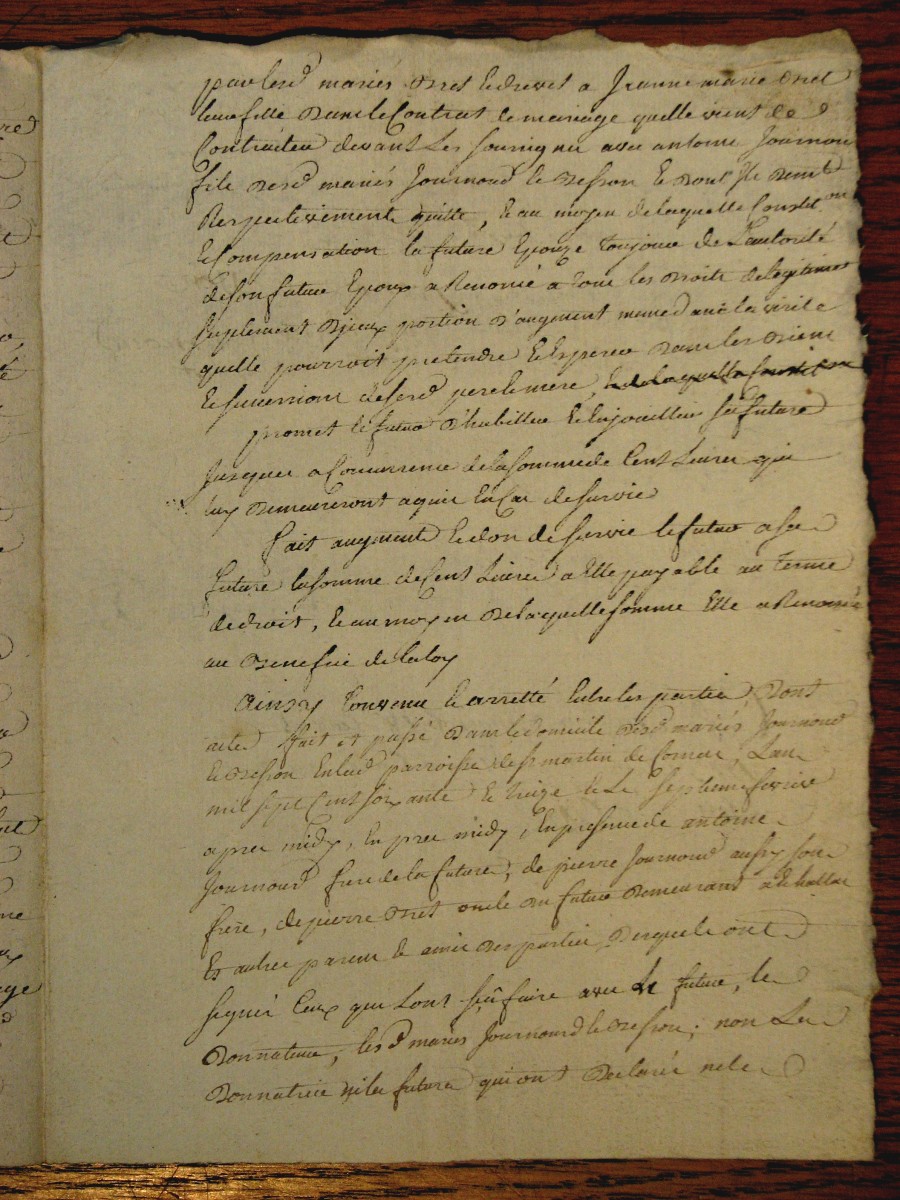 par lesd mariés Oret et drevet a Jeanne marie Oret
leur fille dans le Contrat de mariage quelle vient de
Contracter devant Les soussignés avec antoine Journoud
fils desd mariés Journoud et Besson et dont Ils
Respectivement quitte, et au moyen de laquelle Constition
et Compensation la future Epouze toujours de L'autorité
de son futur Epoux a Renoncé a tous les droits de legitimes
suplement d'jceux portion d'augment
quelle pourroit pretendre et Esperer dans les Biens
et successions desesd pere et mere, et de laquelle Constition
promet le futur d'habiller et Enjouailler sa future
Jusques a Concurrence de la somme de Cent Livres qui
luy demeureront aquis En Cas de survie
fait augment et don de survie le futur a sa
future la somme de Cent Livres a Elle payable au terme
de droit, et au moyen de laquelle somme Elle a Renoncé
au Benefice de la loy
Ainsy Convenu et arretté Entre les parties, Dont
acte fait et passé dans le domicile desd mariés Journoud
et Besson En lad parroisse de st martin de Cornas, L'an
mil sept Cent soixante et treize et Le septieme fevrier
apres midy, En presence de antoine
Journoud frere de la future, de pierre Journoud aussy son
frère, de pierre Oret oncle du futur Demeurant a Echallas
Et autres parens et amis des parties, desquels ont
signé Ceux qui L'ont sçû faire avec Le futur, le
Donnateur, lesd mariés Journoud et Besson; non La
Donnatrice ni la future qui ont Declaré ne le